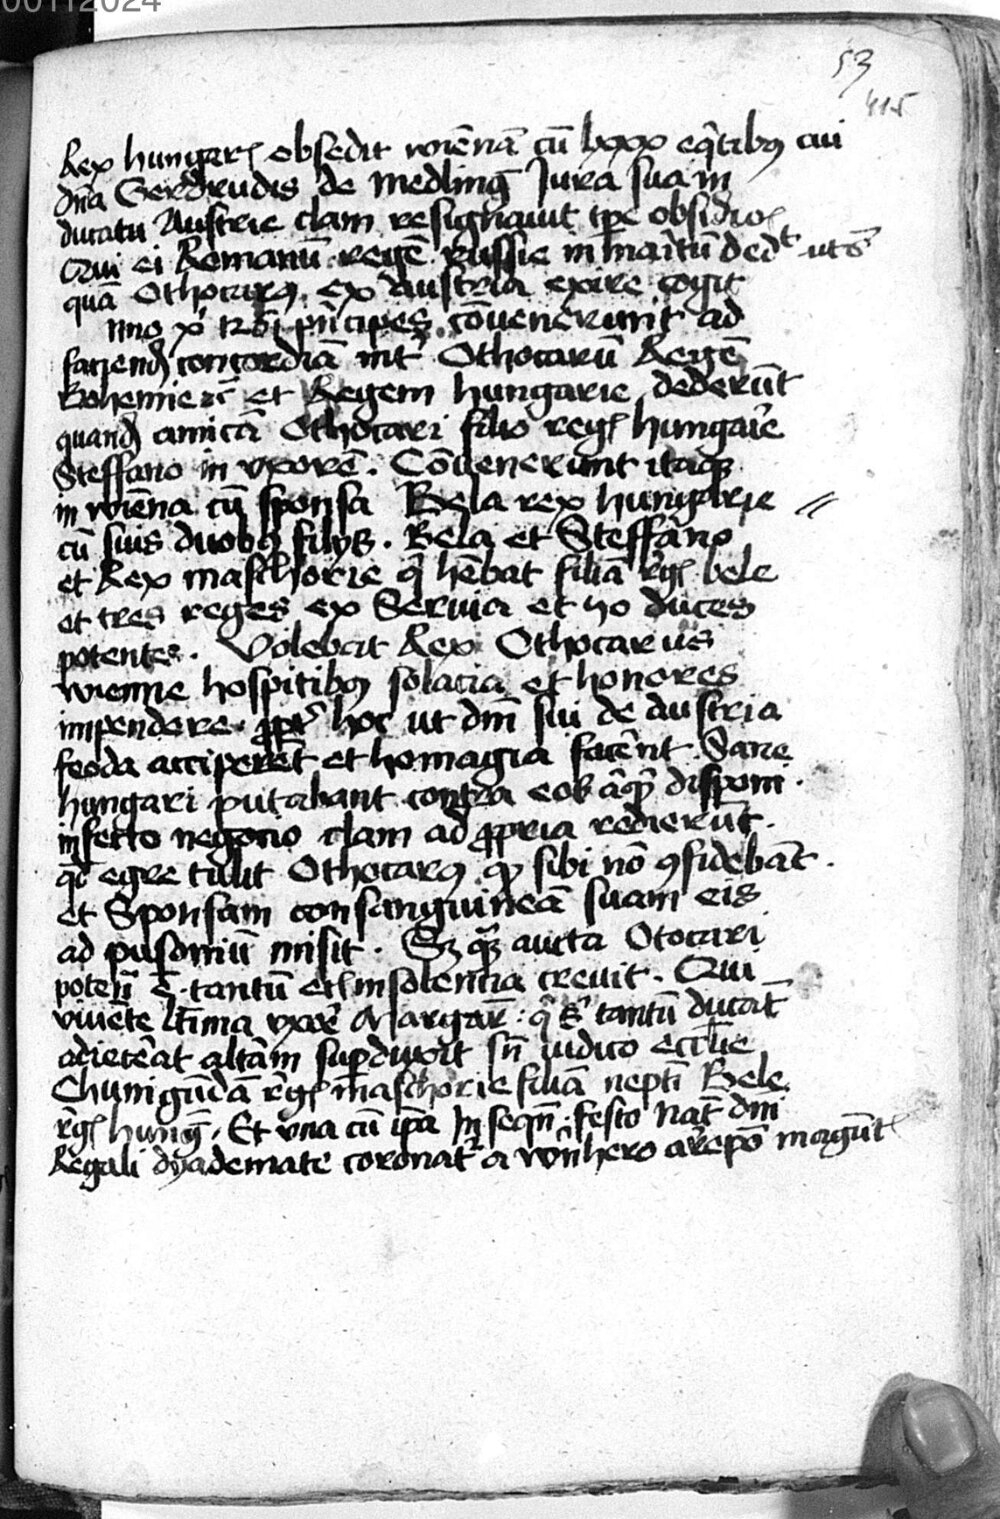 00112024
53
415
Rex hungar obsedit wiēnā cū lxxx eq̄tibꝯ cui
dn̄a Gerdrudis de medling Jura sua in
ducatu Austrie clam resignauit tp̄e obsidio
Qui ei Romanū regē russie in maritū dedt uts
quā Othocarꝯ ex Austria exire cogit
nno xi pn̄cipes cōvenerunt ad
faciend concordiā int Othocarū Regē
Bohemie et Regem hungarie dederūt
quand amicā Othocari filio reg hungarie
Steffano in vxorē. Cōvenerunt itaqꝫ
in wiēna cū sponsa Bela rex hungarie
cū suis duobꝯ filijs. Bela et Steffano
et Rex maschorie q hēbat filiā rg bele
et tres reges ex Seruia et ho duces
potentes. Volebat Rex Othocarus
wienne hospitibꝯ solacia et honores
impendere ꝓpt hoc ut dn̄i sui de austria
feoda acciperēt et homagia facerēnt. Sane
hungari putabant contra eos disponi.
infecto negotio clam ad ꝓpria redierūt.
qd egre tulit Othocarꝯ qꝫ sibi nō ꝯfidebāt.
et Sponsam consanguineā suam eis
ad pusoniū misit. Sꝫ aucta Otocari
potēn ē tantū et insolentia creuit. Qui
viuēte ltīma vxore Margar : q̄ s tantū ducat
adiecerat altām supduxit sn̄ iudico eccl̄ie
Chunigūdā rg maschorie filiā neptī Bele
rg hung. Et vna cū ip̄a In seqn̄ festo nat dn̄i
Regali dyademate coronat a wn̄hero arepō magūt